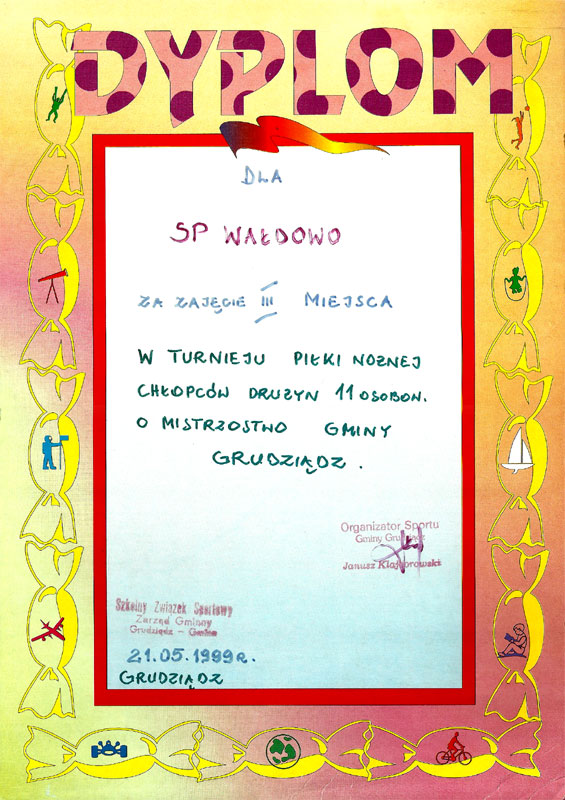 DYPLOM
DLA
SP WAŁDOWO
ZA ZAJĘCIE III MIEJSCA
W TURNIEJU PIŁKI NOZNEJ
CHŁOPCÓW DRUZYN 11 OSOBOW.
O MISTRZOSTWO GMINY
GRUDZIĄDZ.
Organizator Sportu
Gminy Grudziądz
Janusz
Szkolny Związek Sportowy
Zarząd Gminny
Grudziądz - Gmina
21.05.1999r.
GRUDZIĄDZ